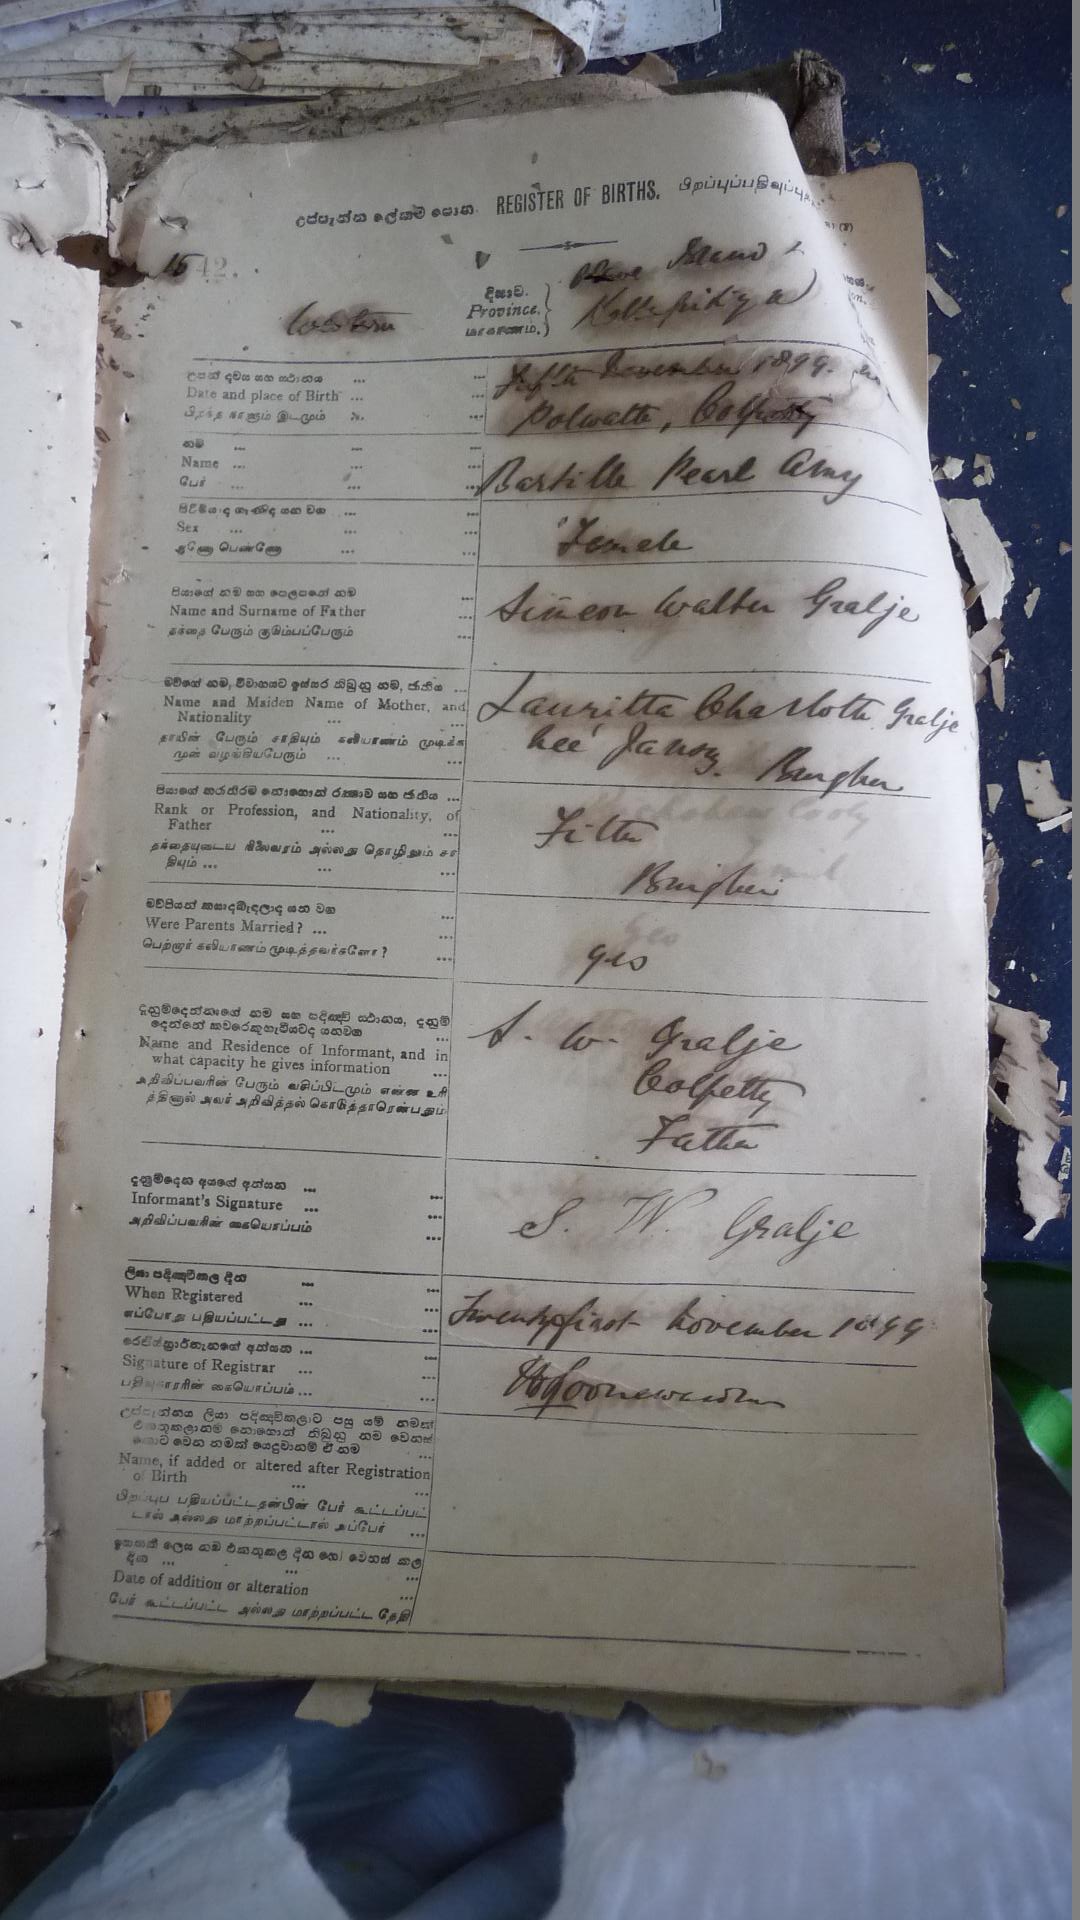 උප්පැන්න ලේකම් පොත. REGISTER OF BIRTHS. பிறப்புப்பதிவுப்பு
1542.
Western
දිසාව.
Province.
மாகாணம்.
Slave Island &
Kollupitiya
උපන් දවස සහ ස්ථානය ...
Date and place of Birth ...
பிறந்த காளும் இடமும்
Fifth November 1899.
Polwatte, Colpetty
නම ...
Name ...
பேர் ...
Bartille Pearl Amy
Sex ...
ஆணோ பெண்ணோ ...
Female
පියාගේ නම සහ පෙලපතේ නම ...
Name and Surname of Father ...
தந்தை பேரும் குடும்பப்பேரும் ...
Simeon Walter Gralje
මව්ගේ නම, විවාහයට ඉස්සර තිබුනු නම, ජාතිය ...
Name and Maiden Name of Mother, and
Nationality ...
தாயின் பேரும் சாதியும் கலியாணம் முடிக்க
முன் வழங்கியபேரும் ...
Lauritta Charlotte Gralje
nee Jansz. Burgher
Rank or Profession, and Nationality, of
Father ...
தந்தையுடைய நிலைவரம் அல்லது தொழிலும் சா
தியும் ...
Fitter
Burgher
Were Parents Married? ...
பெற்றார் கலியாணம் முடித்தவர்களோ?
yes
Name and Residence of Informant, and in
what capacity he gives information ...
அறிவிப்பவரின் பேரும் வசிப்பிடமும் என்ன உரி
த்தினால் அவர் அறிவித்தல் கொடுத்தாரென்பதும்
S. W. Gralje
Colpetty
Father
දැනුම්දෙන අයගේ අත්සන ...
Informant's Signature ...
அறிவிப்பவரின் கையொப்பம் ...
S. W. Gralje
ලියා පදිංචිකල දින ...
When Registered ...
எப்போது பதியப்பட்டது ...
Twenty first November 1899
Signature of Registrar ...
பதிவுகாரரின் கையொப்பம் ...
Name, if added or altered after Registration
of Birth ...
பிறப்புப் பதியப்பட்டதன்பின் பேர் கூட்டப்பட்
டால் அல்லது மாற்றப்பட்டால் அப்பேர் ...
Date of addition or alteration ...
பேர் கூட்டப்பட்ட அல்லது மாற்றப்பட்ட தேதி